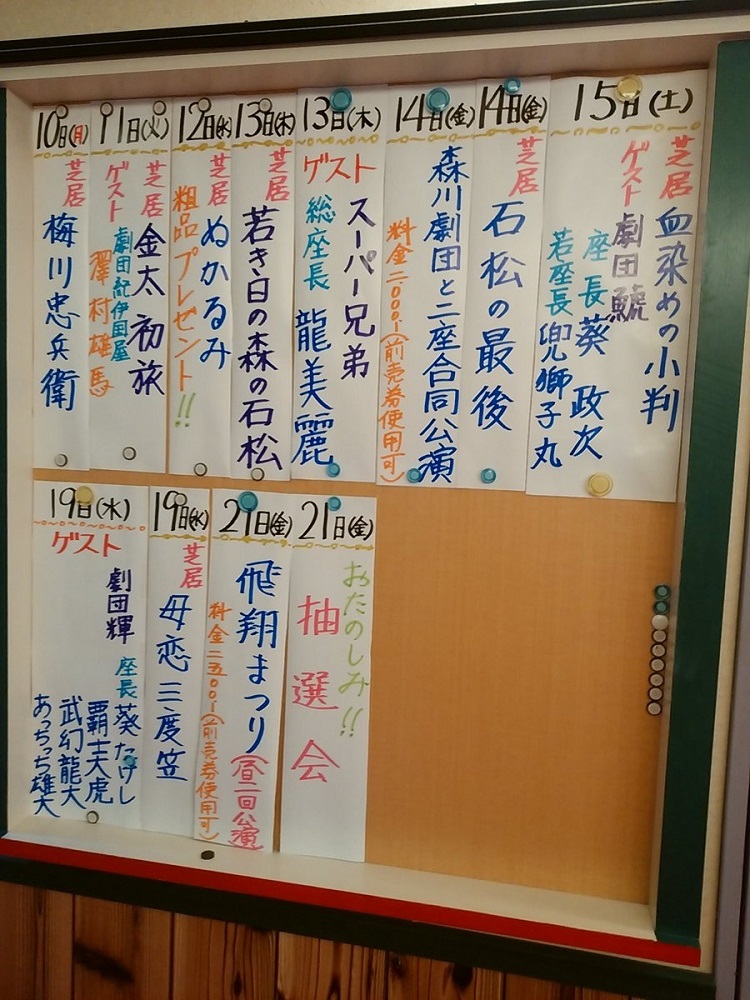 10日(月)
芝居
梅川忠兵衛
11日(火)
芝居
金太初旅
ゲスト
劇団紀伊国屋
澤村雄馬
12日(水)
芝居
ぬかるみ
粗品プレゼント!!
13日(木)
芝居
若き日の森の石松
13日(木)
ゲスト
スーパー兄弟
総座長 龍美麗
14日(金)
森川劇団と二座合同公演
料金二.〇〇〇-(前売券使用可)
14日(金)
芝居
石松の最後
15日(土)
芝居
血染めの小判
ゲスト
劇団鯱
座長 葵政次
若座長 兜獅子丸
19日(水)
ゲスト
劇団輝
座長 葵たけし
覇士大虎
武幻龍大
あっちっち雄大
19日(水)
芝居
母恋三度笠
21日(金)
飛翔まつり(昼二回公演)
料金二五〇〇-(前売券使用可)
21日(金)
おたのしみ!!
抽選会